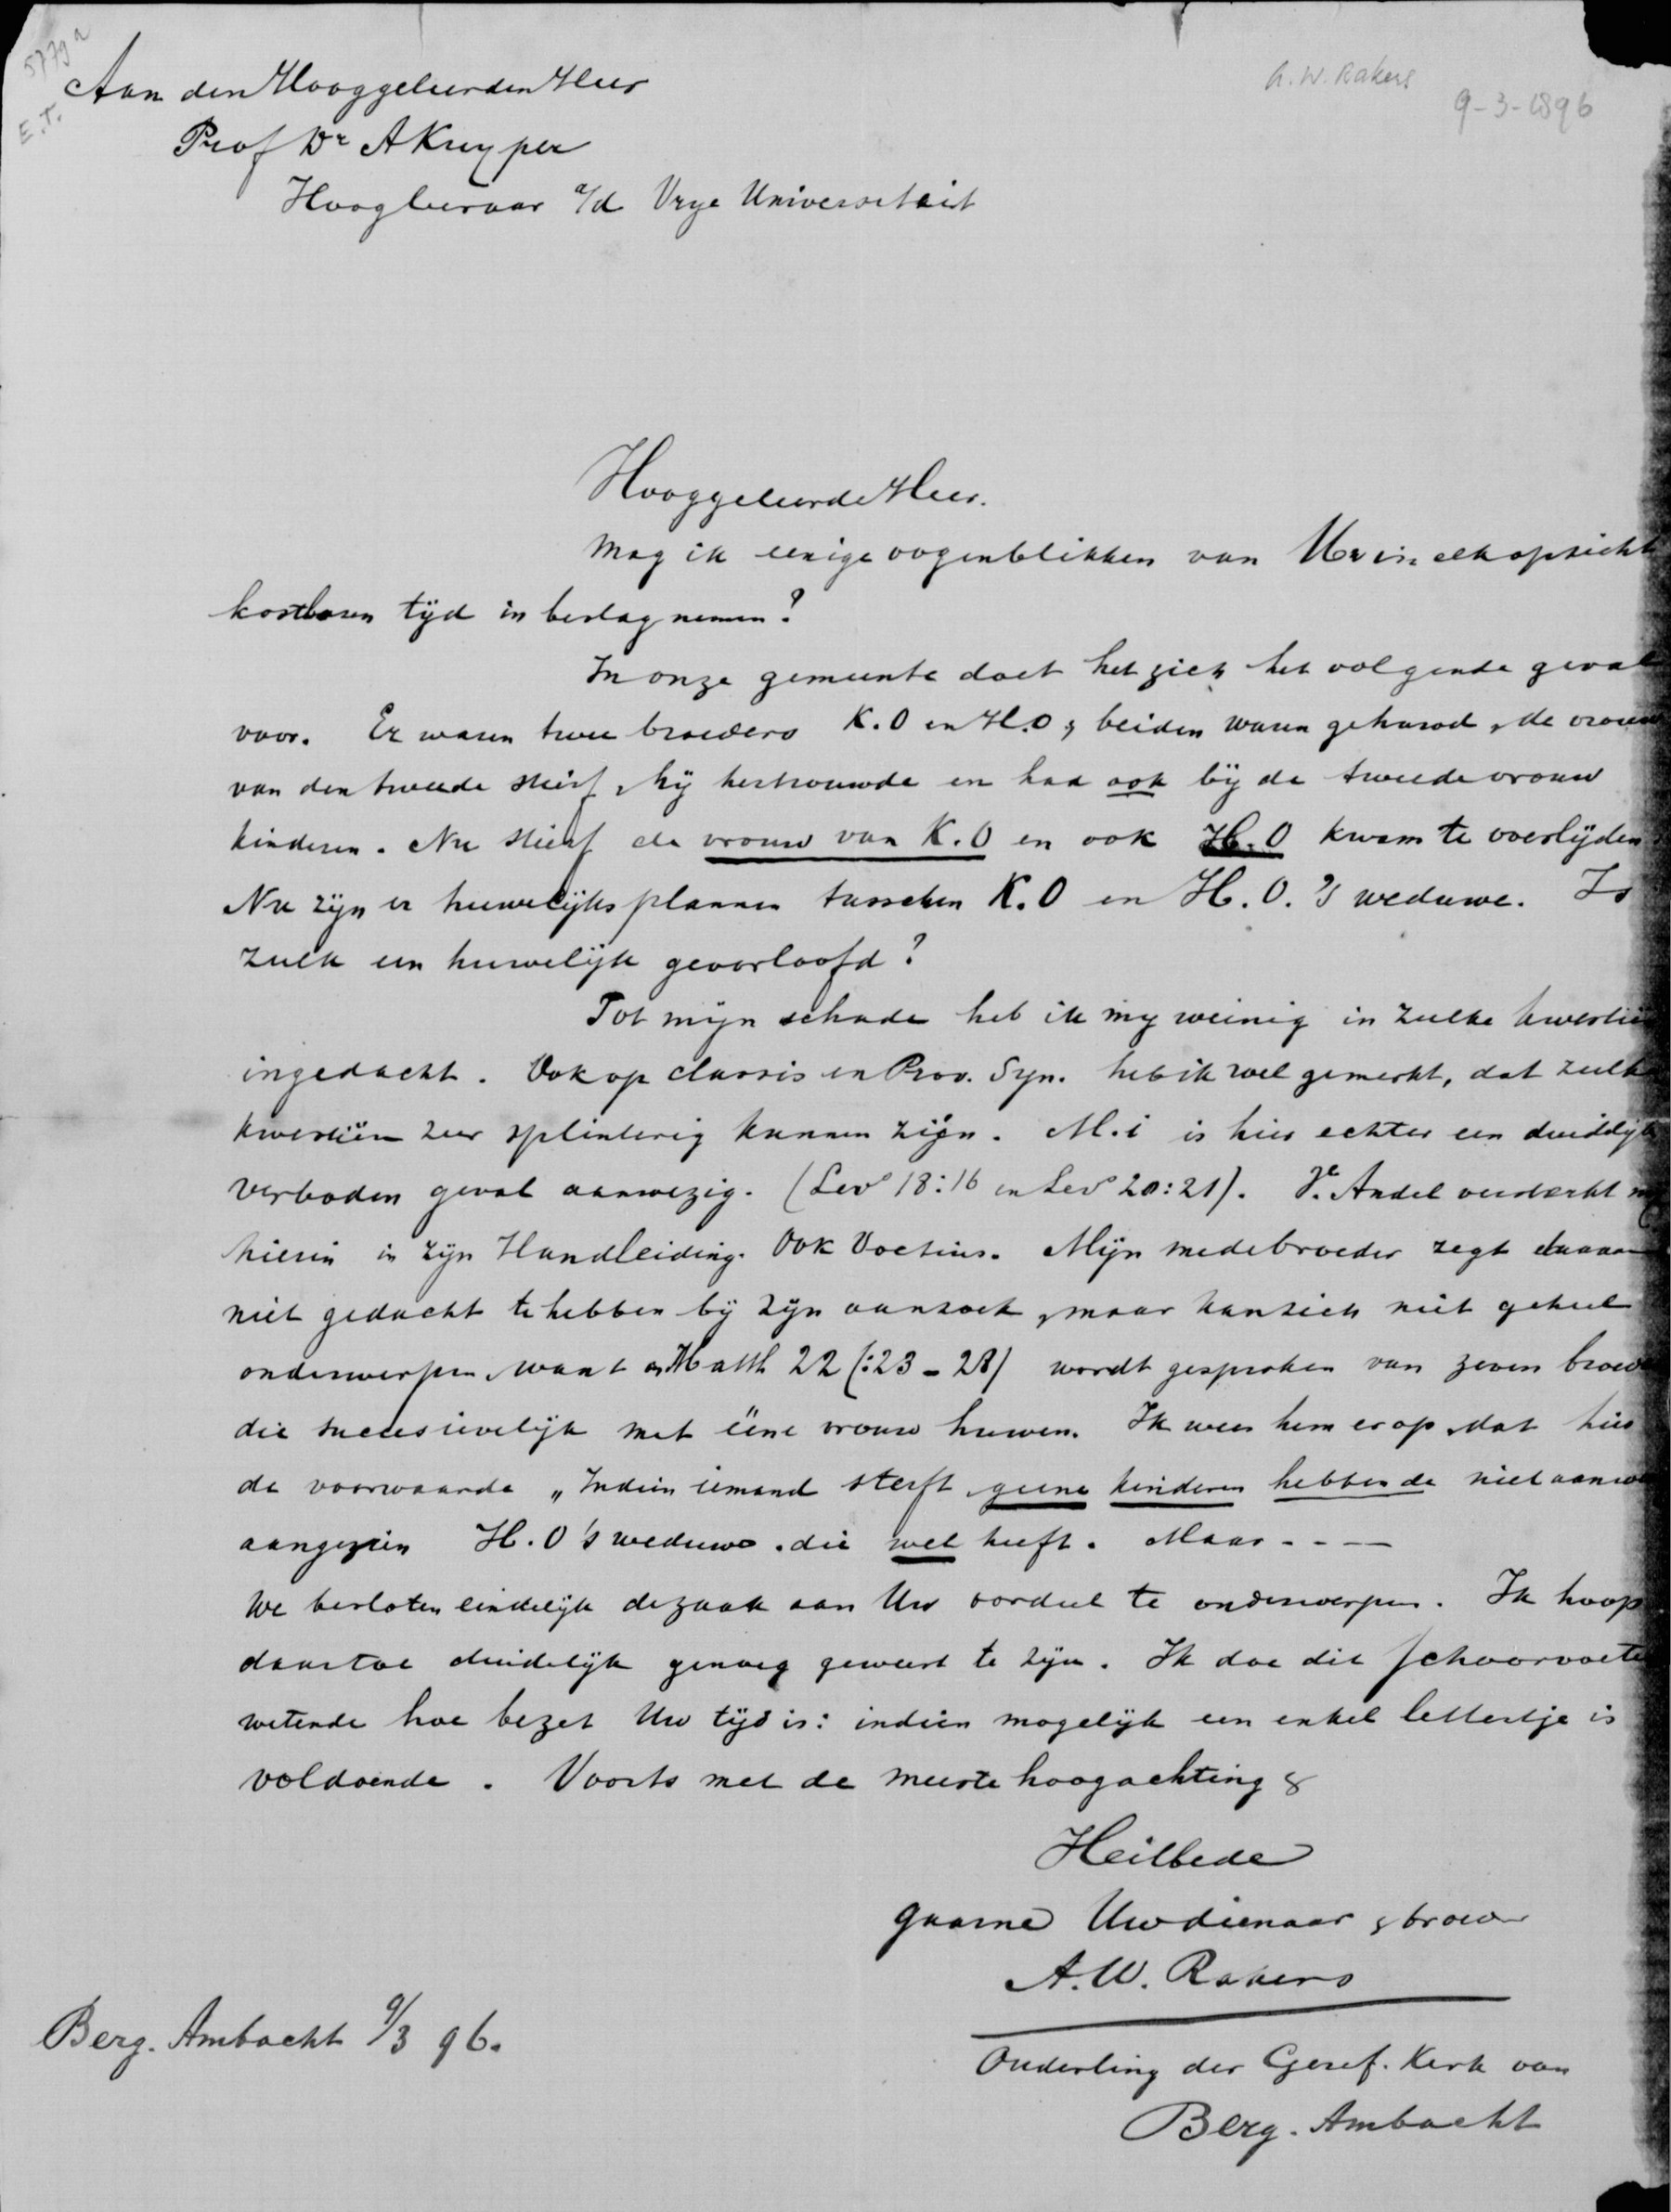 5779a
E.T.
A.W. Rakers
9-3-1896
Aan den Hooggeleerden Heer
Prof Dr A Kuyper
Hoogleeraar a/d Vrye Universiteit
Hooggeleerde Heer.
Mag ik eenige oogenblikken van Uw in elk opzicht
kostbaren tijd in beslag nemen?
In onze gemeente doet het zich het volgende geval
voor. Er waren twee broeders K.O en H.O, beiden waren gehuwd, de vrouw
van den tweede stierf, hij hertrouwde en had ook bij de tweede vrouw
kinderen. Nu stierf de vrouw van K.O en ook H.O kwam te overlijden
Nu zijn er huwelijksplannen tusschen K.O en H.O.'s weduwe. Is
zulk een huwelijk geoorloofd?
Tot mijn schade heb ik my weinig in zulke kwestiën
ingedacht. Ook op classis en Prov. Syn. heb ik wel gemerkt, dat zulke
kwestiën zeer splinterig kunnen zijn. M.i is hier echter een duidelijk
verboden geval aanwezig. (Lev 18:16 en Lev 20:21). Andel versterkt my
hierin in zijn Handleiding. Ook Voetius. Mijn medebroeder zegt daaraan
niet gedacht te hebben bij zijn aanzoek, maar kan zich niet geheel
onderwerpen, want in Matth 22 (:23-28) wordt gesproken van zeven broed
die successievelijk met ééne vrouw huwen. Ik wees hem er op, dat hier
de voorwaarde „Indien iemand sterft geene kinderen hebbende niet aanwe
aangezien H.O's weduwe die wel heeft. Maar - - —
We besloten eindelijk de zaak aan Uw oordeel te onderwerpen. Ik hoop
daartoe duidelijk genoeg geweest te zijn. Ik doe dit schoorvoete
wetende hoe bezet Uw tijd is: indien mogelijk een enkel lettertje is
voldoende. Voorts met de meeste hoogachting &
Heilbede
gaarne Uw dienaar & broeder
A.W. Rakers
Berg. Ambacht 9/3 96.
Ouderling der Geref. Kerk van
Berg. Ambacht